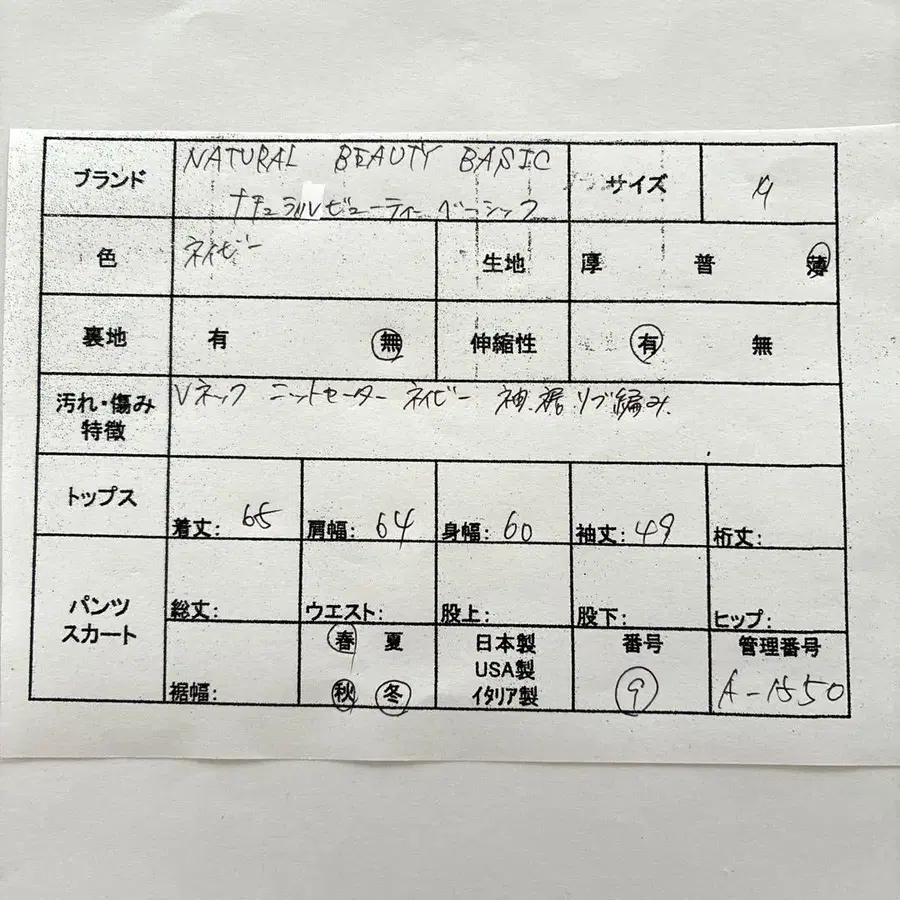 ブランド NATURAL BEAUTY BASIC サイズ M
ナチュラルビューティーベーシック
色 ネイビー 生地 厚 普 薄
裏地 有 無 伸縮性 有 無
汚れ・傷み Vネック ニットセーター ネイビー 袖、裾リブ編み.
特徴
トップス
着丈: 65 肩幅: 64 身幅: 60 袖丈: 49 裄丈:
パンツ
スカート
総丈: ウエスト: 股上: 股下: ヒップ:
春 夏 日本製 番号 管理番号
USA製
裾幅: 秋 冬 イタリア製 9 A-1550